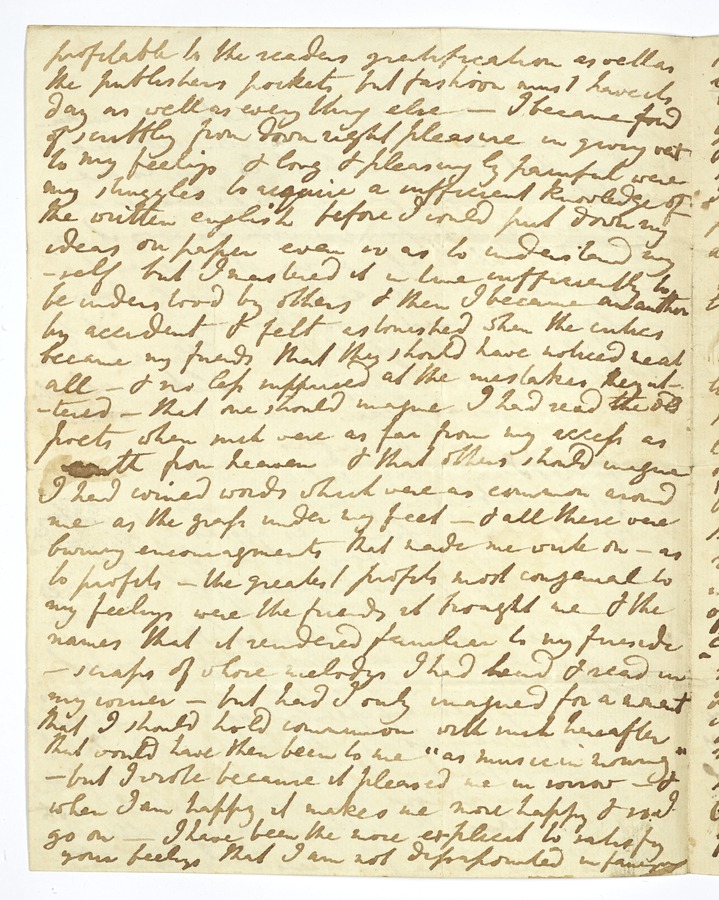 profitable to the readers gratification as well as
the publishers pockets but fashion must have its
day as well as every thing else — I became fond
of scribbling from down right pleasure in giving vent
to my feelings & long & pleasingly painful were
my struggles to acquire a sufficient knowledge of
the written english before I could put down my
ideas on paper even so as to understand my
-self but I mastered it in time sufficiently to
be understood by others & then I became an author
by accident & felt astonished when the critics
became my friends that they should have noticed me at
all — & no less surprised at the mistakes they ut-
-tered — that one should imagine I had read the old
poets when such were as far from my access as
earth from heaven & that others should imagine
I had coined words which were as common around
me as the grass under my feet — & all these were
burning encouragments that made me write on — as
to profits — the greatest profits most congenial to
my feelings were the friends it brought me & the
names that it rendered familiar to my fireside
— scraps of whose melodys I had heard & read in
my corner — but had I only imagined for a moment
that I should hold communion with such hereafter
that would have then been to me "as music in mourning"
— but I wrote because it pleased me in sorrow — &
when I am happy it makes me more happy & so I
go on — I have been the more explicit to satisfy
your feelings that I am not dissapointed in